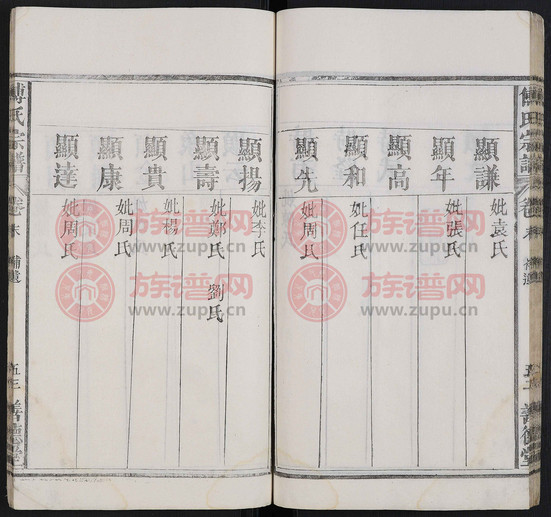 顯謙
妣袁氏
顯年
妣張氏
顯高
顯和
妣任氏
顯先
妣周氏
顯揚
妣李氏
顯壽
妣鄭氏 劉氏
顯貴
妣楊氏
顯康
妣周氏
顯達
妣周氏
傅氏宗譜
卷末
補遺
善德堂
族谱网
www.zupu.cn
族谱网
www.zupu.cn
族谱网
www.zupu.cn
族谱网
www.zupu.cn